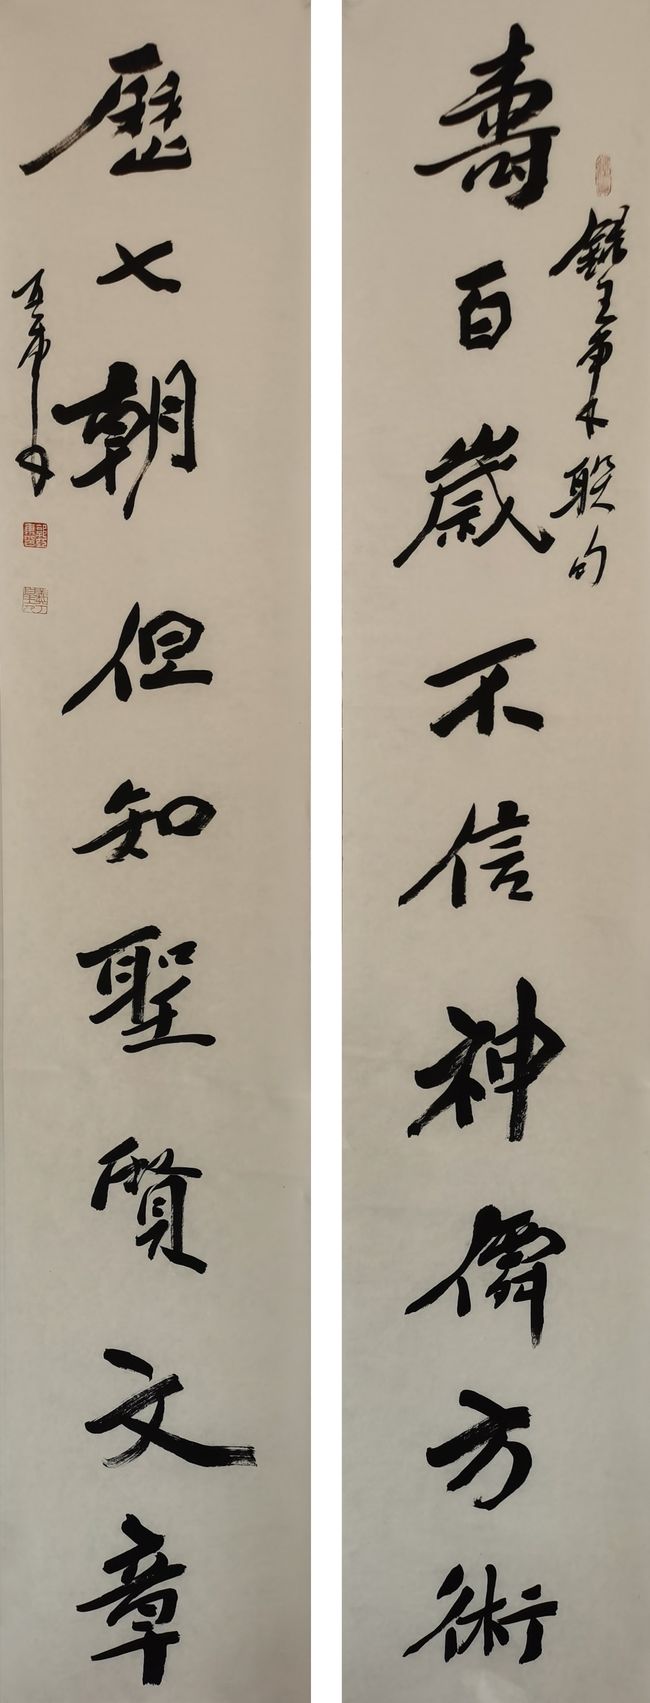 壽百歲不信神僊方術
錄王東木聯句
歷七朝但知聖賢文章